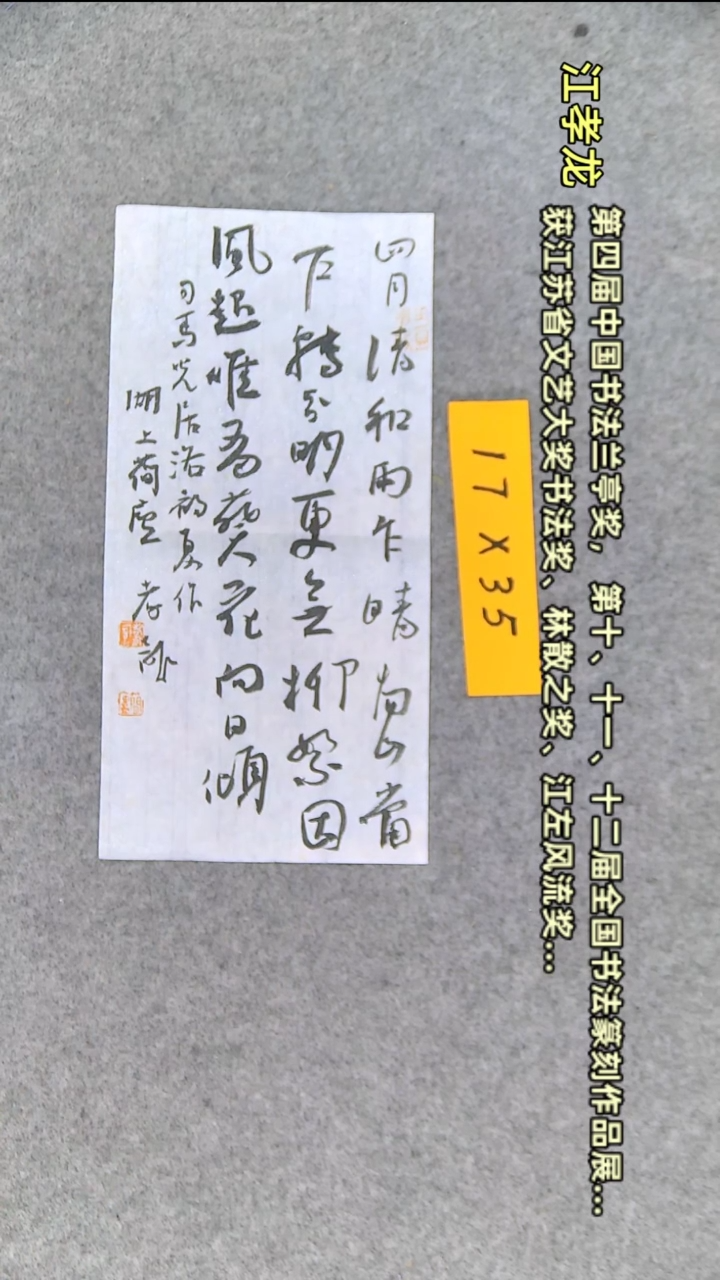 江孝龙
第四届中国书法兰亭奖，第十、十一、十二届全国书法篆刻作品展...
获江苏省文艺大奖书法奖、林散之奖、江左风流奖...
17 X 35
四月清和雨乍晴南山當
户轉分明更無柳絮因
風起惟有葵花向日傾
司馬光居洛初夏作
湖上荷廬 孝龍